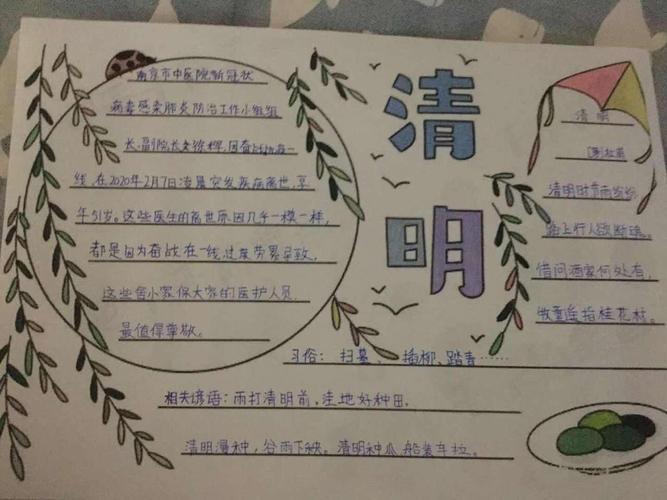 清明
南京市中医院新冠状
病毒感染肺炎防治工作小组组
长、副院长徐辉,因奋战抗疫一
线,在2020年2月7日凌晨突发疾病离世,享
年51岁。这些医生的离世原因几乎一模一样,
都是因为奋战在一线,过度劳累导致,
这些舍小家保大家的医护人员,
最值得尊敬。
清明
清明时节雨纷纷
路上行人欲断魂。
借问酒家何处有,
牧童遥指桂花村。
习俗:扫墓、插柳、踏青……
相关谚语:雨打清明前,洼地好种田。
清明漫种,谷雨下秧。清明种瓜,船装车拉。